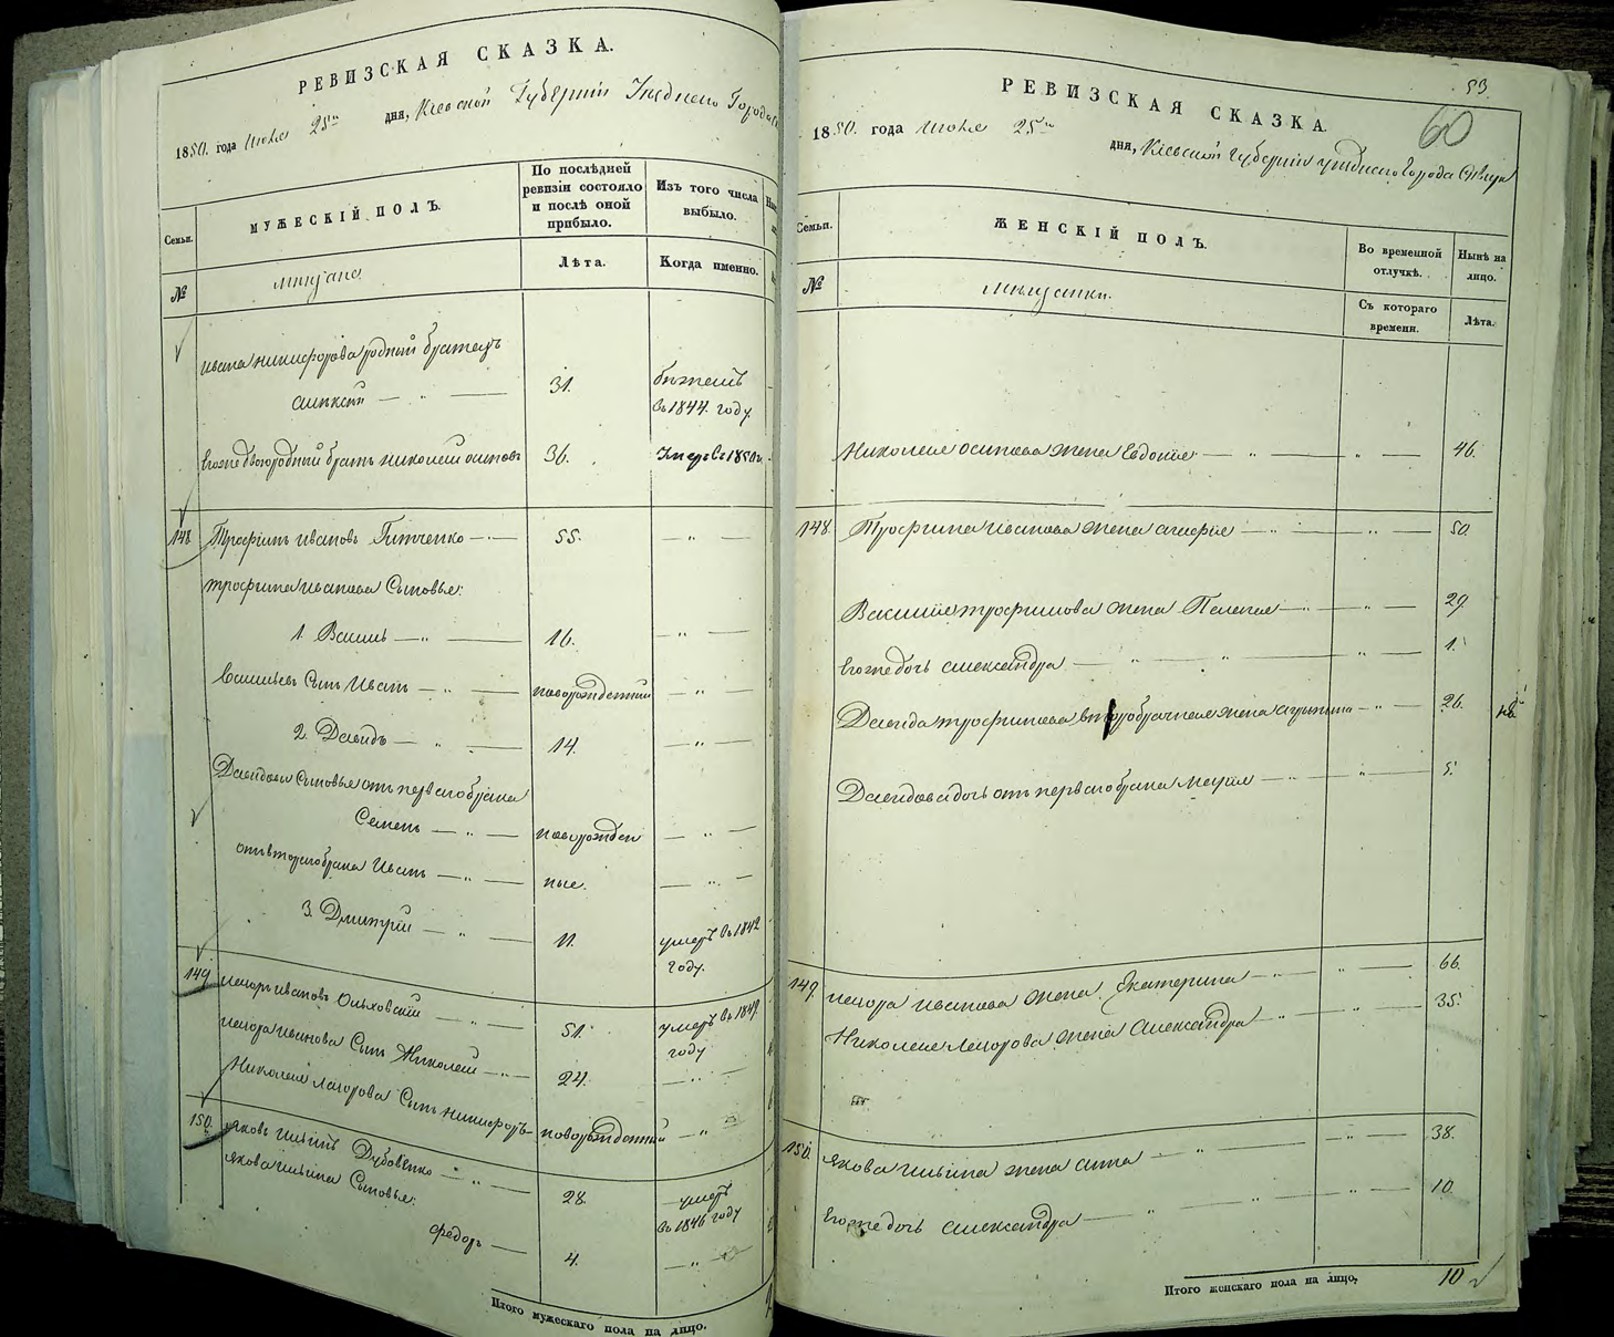 РЕВИЗСКАЯ СКАЗКА.
1850. года Июля 25го дня, Кіевской Губерніи Уезднаго Города
Семьи.
МУЖЕСКІЙ ПОЛЪ.
По послѣдней ревизіи состояло и послѣ оной прибыло.
Изъ того числа выбыло.
№
мещане.
Лѣта.
Когда именно.
Ивана Никифорова родный братецъ
Алексей — „ — 31. бежалъ
въ 1844. году.
Егоже двоюродный братъ Николай Осиповъ 36. Умеръ въ 1850 г.
148 Трофимъ Ивановъ — „ — 55. — „ —
Трофима Иванова Сыновья:
1. Василь — „ — 16. — „ —
Васильевъ Сынъ Иванъ — „ — новорожденный — „ —
2. Давидъ — „ — 14. — „ —
Давидовы Сыновья отъ перваго брака
Семенъ — „ — новорожден — „ —
отъ втораго брака Иванъ — „ — ные. — „ —
3. Дмитрій — „ — 11. умеръ въ 1842
году.
149 Ивановъ Ольховскій — „ — 51. умеръ въ 1849.
году
Иванова Сынъ Николай — „ — 24. — „ —
Николая Сынъ Никифоръ — новорожденный — „ —
150. Яковъ Ильинъ Дубовенко — „ — 28. умеръ
въ 1846 году
Якова Ильина Сыновья:
Федоръ — 4. — „ —
Итого мужескаго пола на лицо.
53.
60
РЕВИЗСКАЯ СКАЗКА.
1850. года Июля 25го дня, Кіевской Губерніи уезднаго Города Сквиры
Семьи.
ЖЕНСКІЙ ПОЛЪ.
Во временной отлучкѣ.
Нынѣ на лицо.
№
мещанки.
Съ котораго времени.
Лѣта.
Николая Осипова жена Евдокія — „ — „ — 46.
148. Трофима Иванова жена Агафія — „ — „ — 50.
Василія Трофимова жена Пелагея — „ — „ — 29.
Егоже дочь Александра — „ — „ — „ — 1.
Давида Трофимова второбрачная жена Агрипина — „ — 26.
Давидова дочь отъ перваго брака Марія — „ — „ — 5.
149. Иванова жена Екатерина — „ — „ — 66.
Николая жена Александра — „ — „ — 35.
150. Якова Ильина жена Анна — „ — „ — 38.
Егоже дочь Александра — „ — „ — „ — 10.
Итого женскаго пола на лицо, 10